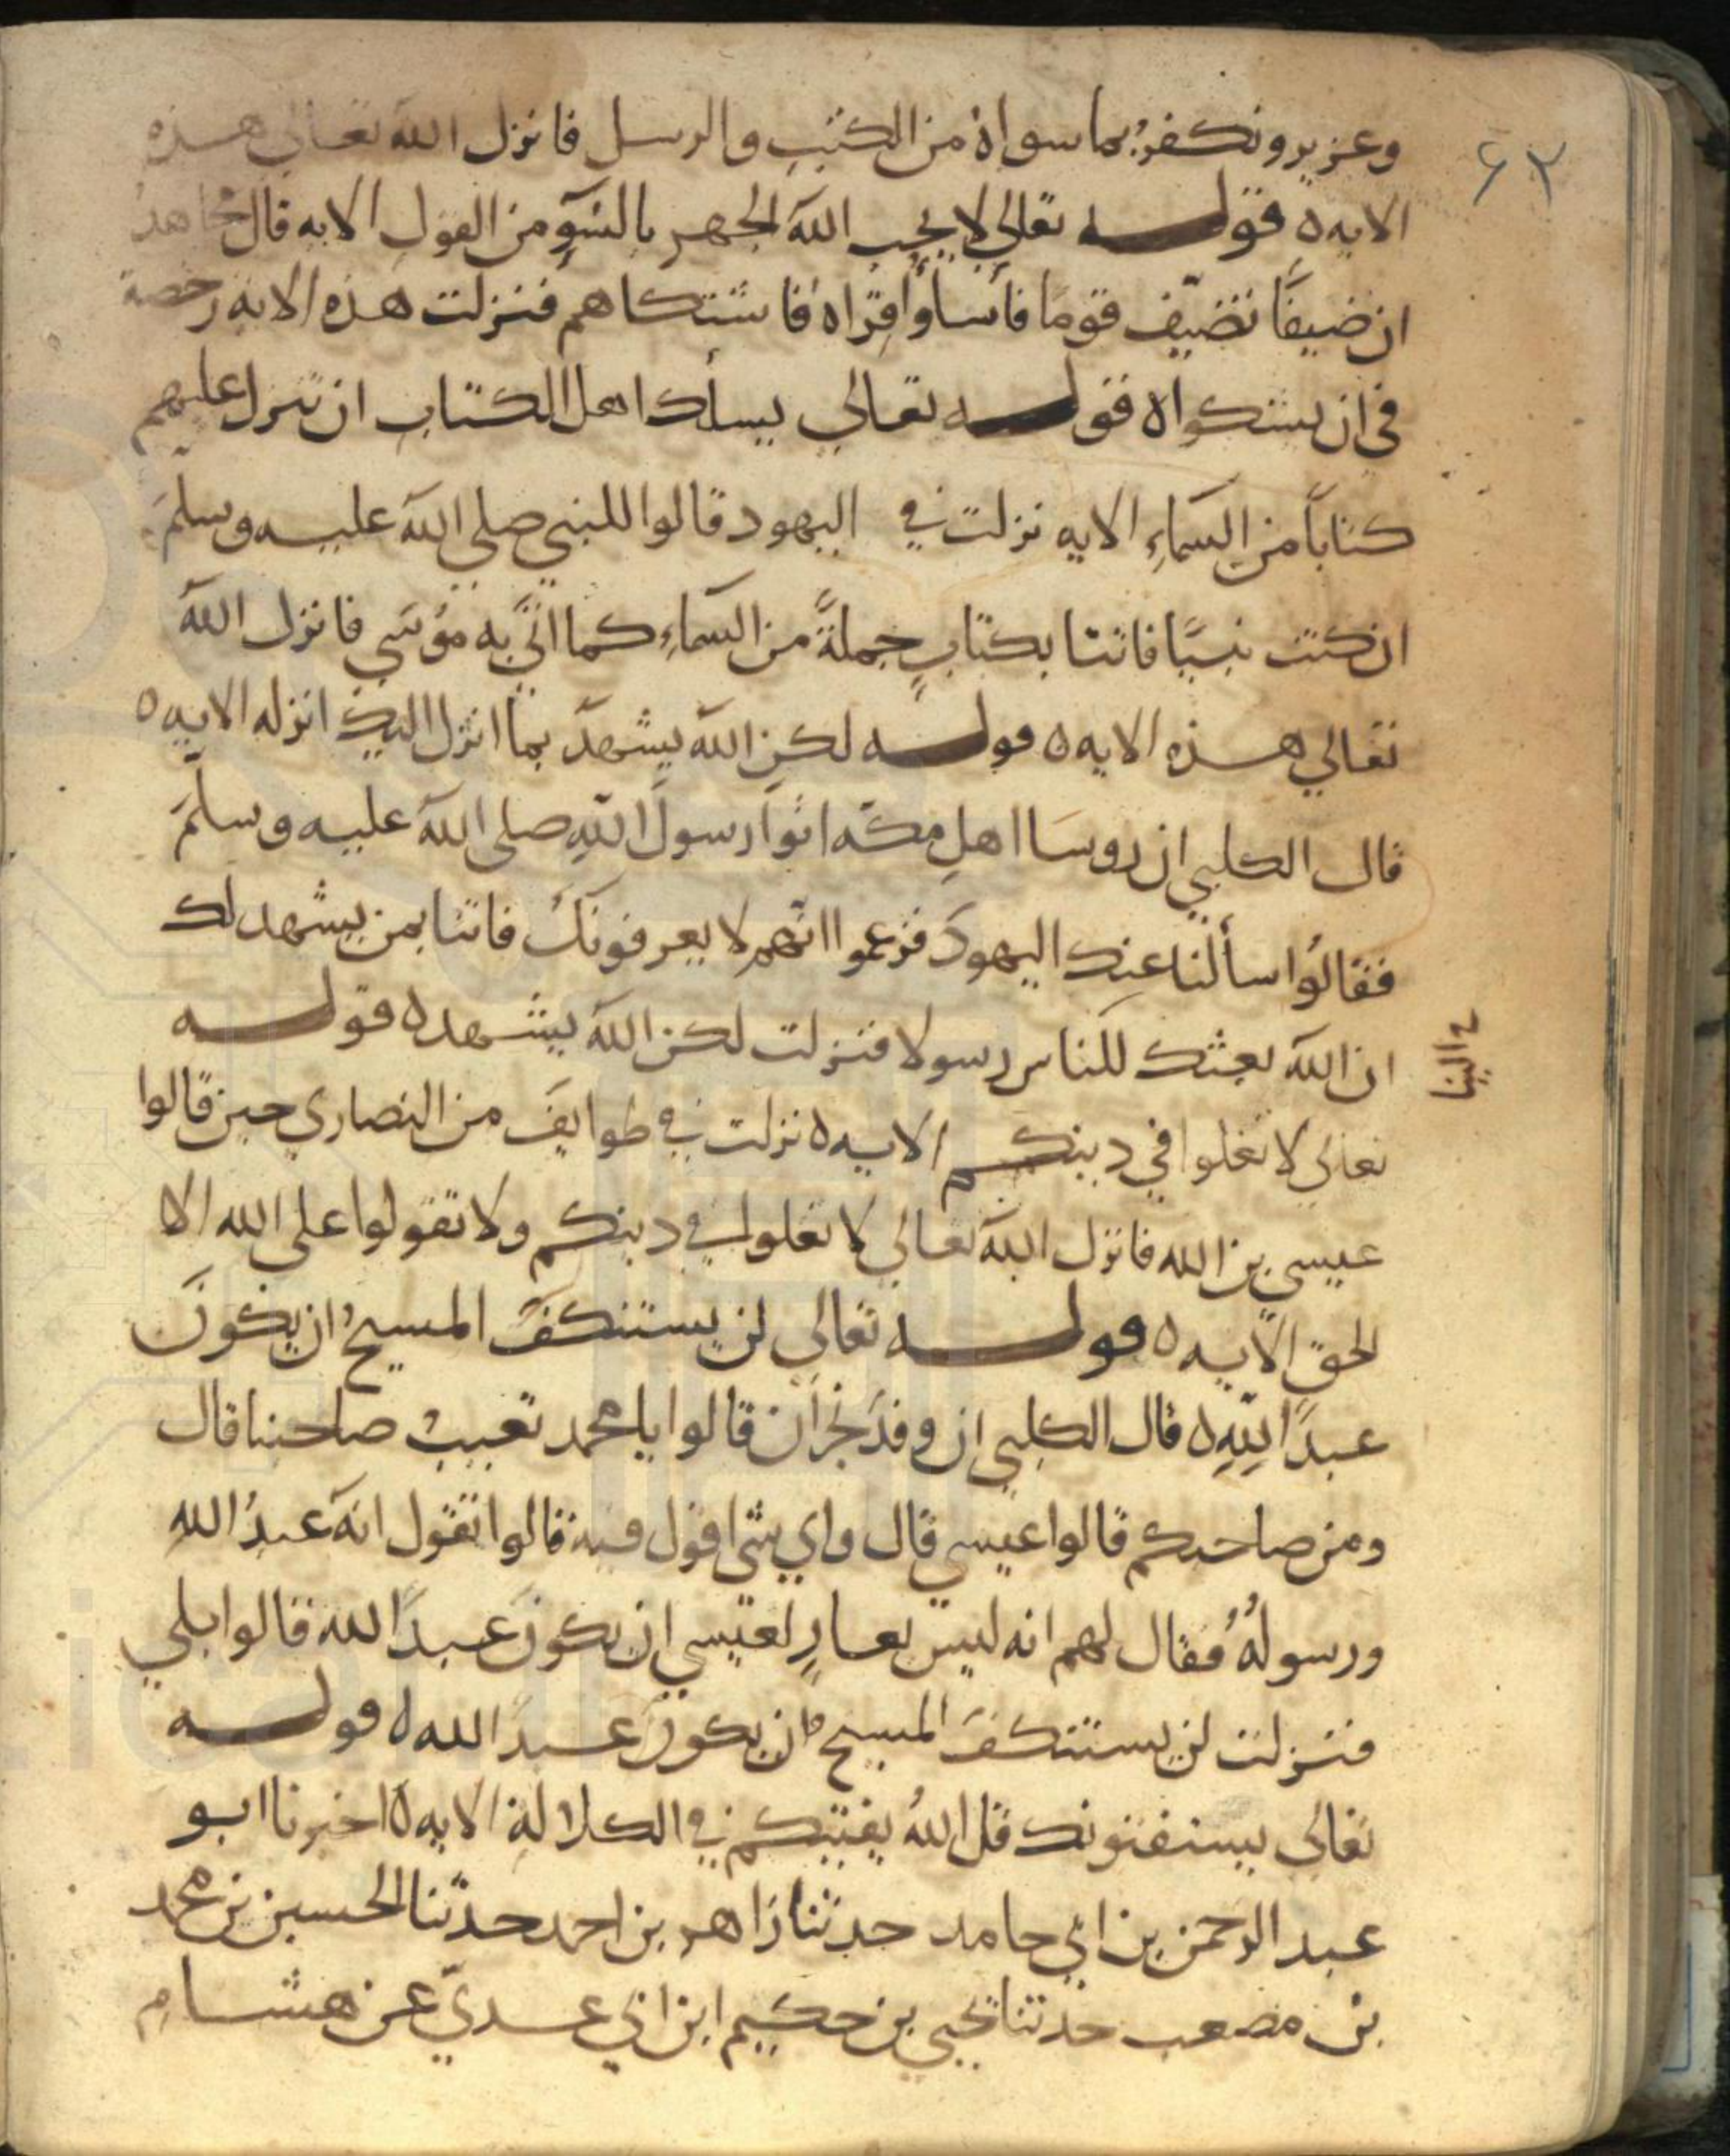 ٦٢
وعزير ونكفر بما سواه من الكتب والرسل فانزل الله تعالى هذه
الايه ه قوله تعالى لا يحب الله الجهر بالسوء من القول الايه قال مجاهد
ان ضيفًا تضيّف قومًا فأساؤا قِراه فاشتكاهم فنزلت هذه الايه رخصة
في ان يشكوا ه قوله تعالى يسألك اهل الكتاب ان تنزل عليهم
كتابًا من السماءِ الايه نزلت في اليهود قالوا للنبي صلى الله عليه وسلم
ان كنت نبيًا فاتنا بكتابٍ جملةً من السماءِ كما اتى به موسى فانزل الله
تعالى هذه الايه ه قوله لكن الله يشهد بما انزل اليك انزله الايه ه
قال الكلبي ان روسا اهلِ مكه اتوا رسول اللهِ صلى الله عليه وسلم
فقالوا سألنا عنك اليهودَ فزعموا انهم لا يعرفونك فاتنا بمن يشهد لك
ان الله بعثك للناس رسولا فنزلت لكن الله يشهد ه قوله
الينا
تعالى لا تغلوا في دينكم الايه ه نزلت في طوايف من النصارى حين قالوا
عيسى بن الله فانزل الله تعالى لا تغلوا في دينكم ولا تقولوا على الله الا
الحق الايه ه قوله تعالى لن يستنكفَ المسيحُ ان يكونَ
عبدًا للهِ ه قال الكلبي ان وفدَ نجران قالوا يا محمد تعيب صاحبنا قال
ومن صاحبكم قالوا عيسى قال واي شى اقول فيه قالوا تقول انه عبدُ الله
ورسولُهُ فقال لهم انه ليس بعارٍ لعيسى ان يكونَ عبدًا لله قالوا بلى
فنزلت لن يستنكفَ المسيح ان يكونَ عبدًا لله ه قوله
تعالى يستفتونك قل اللهُ يفتيكم في الكلالةِ الايه ه اخبرنا ابو
عبد الرحمن بن ابي حامد حدثنا زاهر بن احمد حدثنا الحسين بن محمد
بن مصعب حدثنا يحيى بن حكيم ابن ابي عدي عن هشام